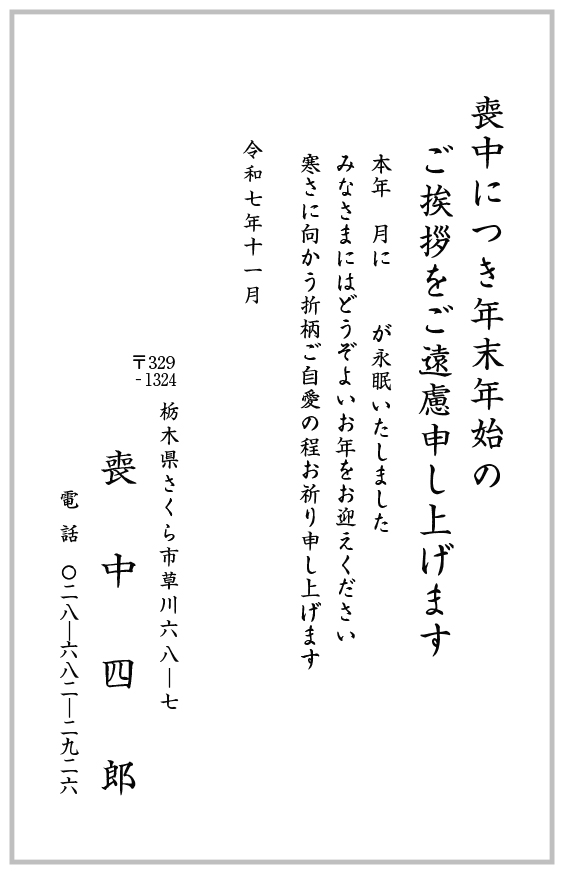 喪中につき年末年始の
ご挨拶をご遠慮申し上げます
本年　月に　　が永眠いたしました
みなさまにはどうぞよいお年をお迎えください
寒さに向かう折柄ご自愛の程お祈り申し上げます
令和七年十一月
〒329
-1324
栃木県さくら市草川六八―七
喪中四郎
電話　〇二八―六八二―二九二六